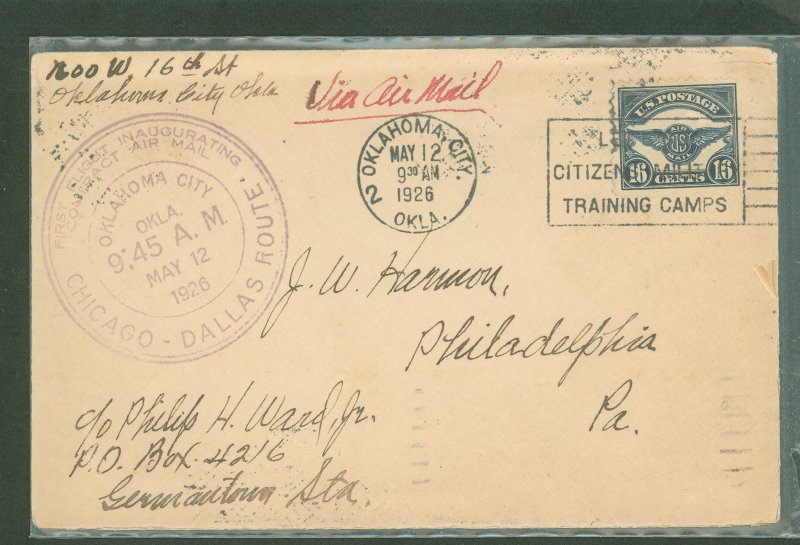 W 16th St
Oklahoma City Okla
Via Air Mail
FIRST FLIGHT INAUGURATING
CONTRACT AIR MAIL
OKLAHOMA CITY
OKLA.
9:45 A. M.
MAY 12
1926
CHICAGO - DALLAS ROUTE.
OKLAHOMA CITY.
MAY 12
9 30 AM
1926
2
OKLA.
CITIZENS MILIT
TRAINING CAMPS
U.S. POSTAGE
AIR
US
MAIL
16 CENTS 16
J. W. Harmon,
Philadelphia
Pa.
c/o Philip H. Ward, Jr.
P.O. Box 4216
Germantown Sta.